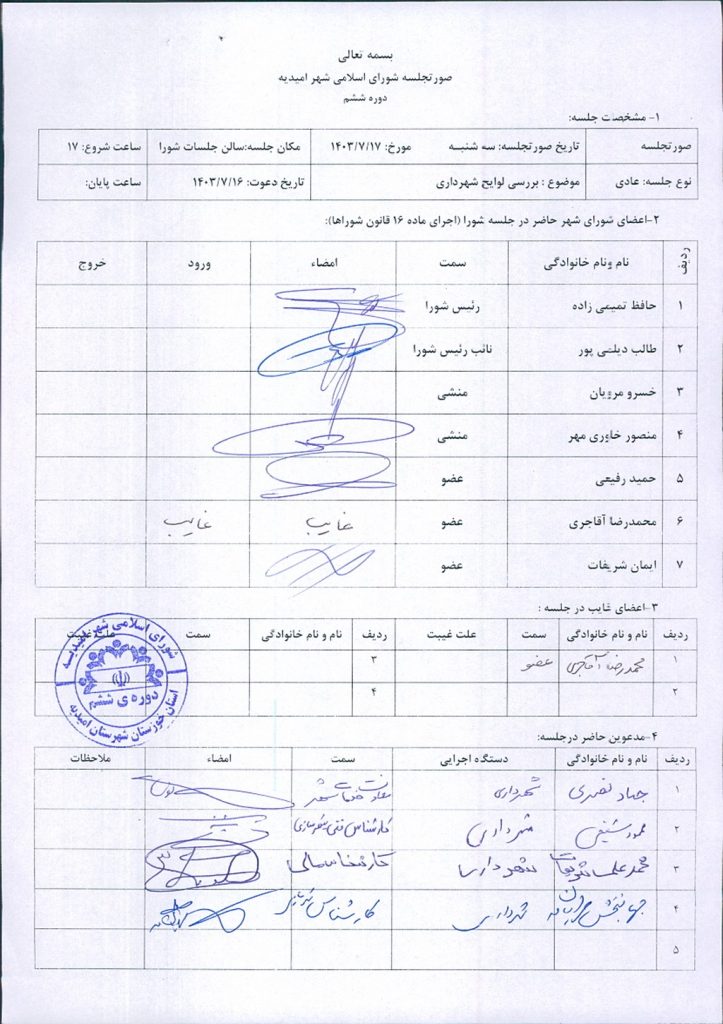 بسمه تعالی
صورتجلسه شورای اسلامی شهر امیدیه
دوره ششم
۱- مشخصات جلسه:
صورتجلسه تاریخ صورتجلسه: سه شنبه مورخ: ۱۴۰۳/۷/۱۷ مکان جلسه:سالن جلسات شورا ساعت شروع: ۱۷
نوع جلسه: عادی موضوع : بررسی لوایح شهرداری تاریخ دعوت: ۱۴۰۳/۷/۱۶ ساعت پایان:
۲-اعضای شورای شهر حاضر در جلسه شورا (اجرای ماده ۱۶ قانون شوراها):
ردیف نام ونام خانوادگی سمت امضاء ورود خروج
۱ حافظ تمیمی زاده رئیس شورا
۲ طالب دیلمی پور نائب رئیس شورا
۳ خسرو مرویان منشی
۴ منصور خاوری مهر منشی
۵ حمید رفیعی عضو
۶ محمدرضا آقاجری عضو غایب غایب
۷ ایمان شریفات عضو
۳-اعضای غایب در جلسه :
ردیف نام و نام خانوادگی سمت علت غیبت ردیف نام و نام خانوادگی سمت علت غیبت
۱ محمدرضا آقاجری عضو ۳
۲ ۴
شورای اسلامی شهر امیدیه
دوره ی ششم
استان خوزستان شهرستان امیدیه
۴-مدعوین حاضر درجلسه:
ردیف نام و نام خانوادگی دستگاه اجرایی سمت امضاء ملاحظات
۱ شهرداری
۲ شهرداری کارشناس فنی
۳ محمدعلی شهرداری
۴ شهرداری کارشناس
۵